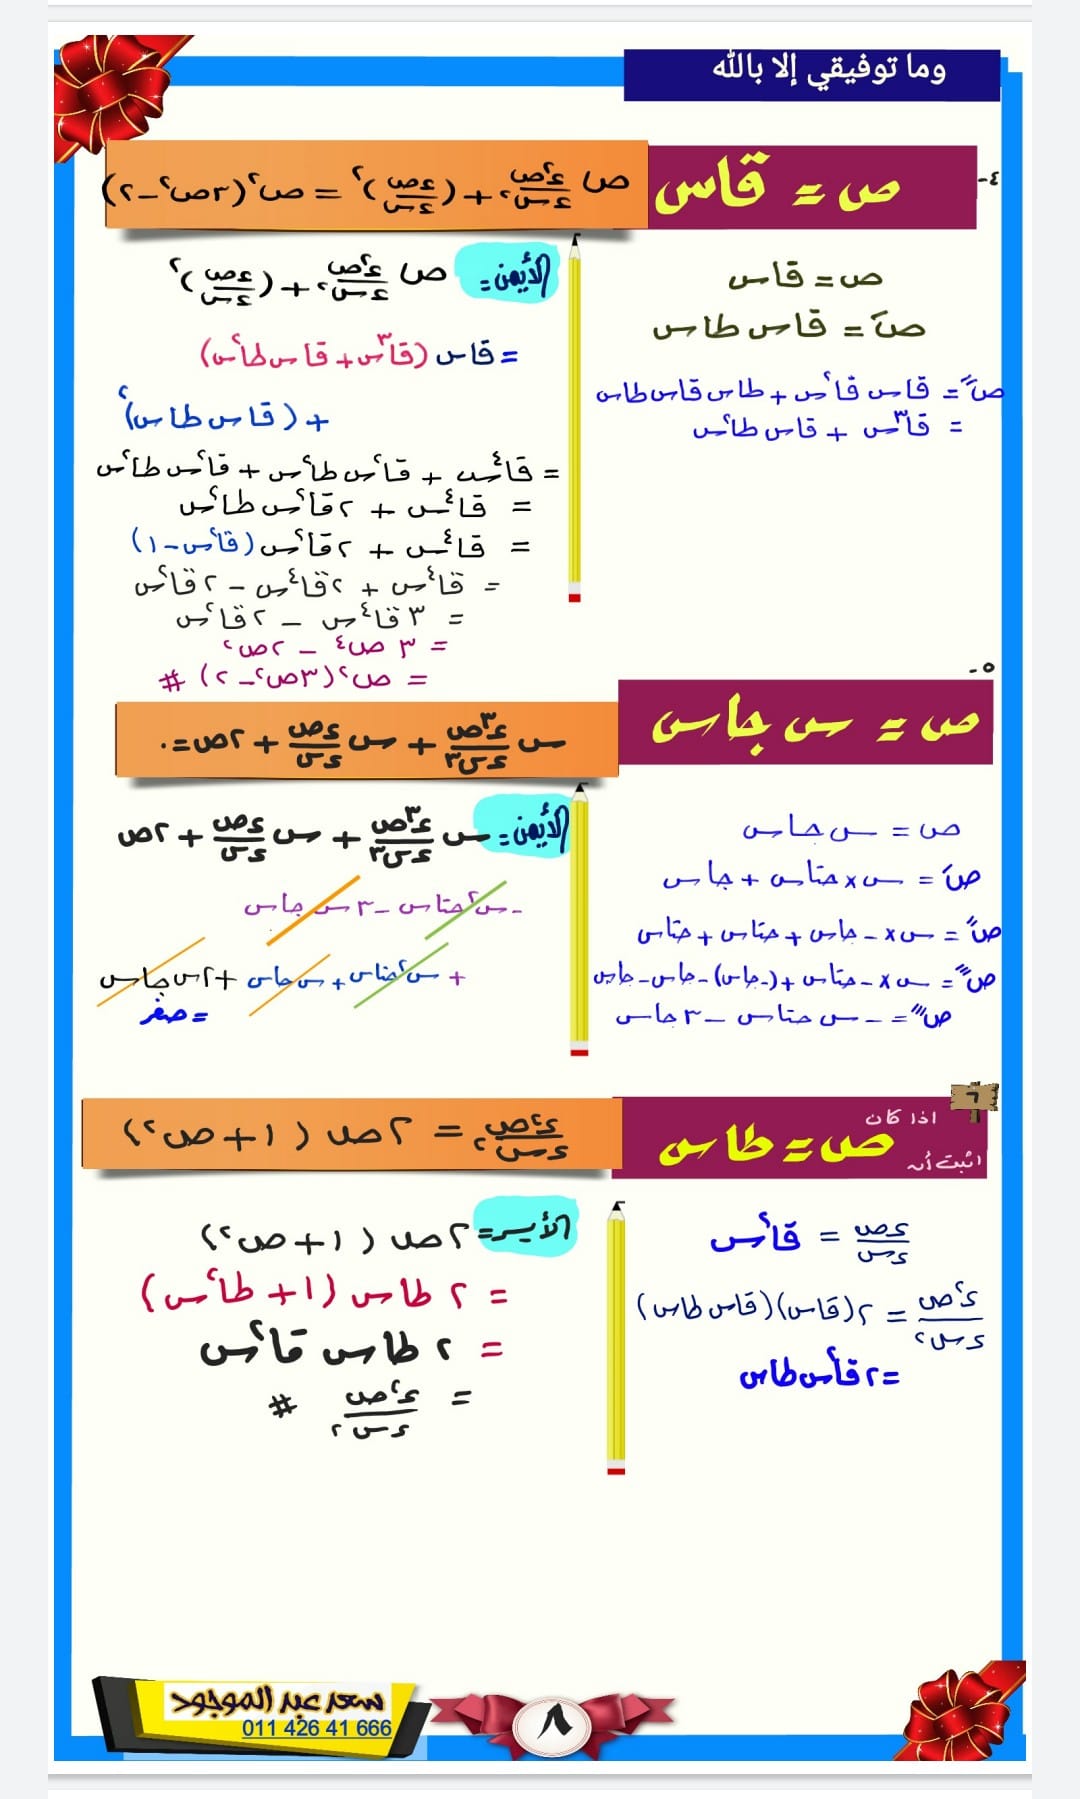 وما توفيقي إلا بالله
٤-
ص = قاس
ص ء²ص/ءس² + (ءص/ءس)² = ص²(٣ص² - ٢)
ص = قاس
صَ = قاس طاس
صً = قاس قا²س + طاس قاس طاس
= قا³س + قاس طا²س
الأيمن = ص ء²ص/ءس² + (ءص/ءس)²
= قاس (قا³س + قاس طا²س)
+ (قاس طاس)²
= قا⁴س + قا²س طا²س + قا²س طا²س
= قا⁴س + ٢قا²س طا²س
= قا⁴س + ٢قا²س (قا²س - ١)
= قا⁴س + ٢قا⁴س - ٢قا²س
= ٣قا⁴س - ٢قا²س
= ٣ص⁴ - ٢ص²
= ص²(٣ص² - ٢) #
٥-
ص = س جاس
س ء³ص/ءس³ + س ءص/ءس + ٢ص = ٠
ص = س جاس
صَ = س × جتاس + جاس
صً = س × - جاس + جتاس + جتاس
صً = س × - جتاس + (-جاس) - جاس - جاس
صً = - س جتاس - ٣جاس
الأيمن = س ء³ص/ءس³ + س ءص/ءس + ٢ص
- س² جتاس - ٣س جاس
+ س² جتاس + س جاس + ٢س جاس
= صفر
٦
اذا كان
ص = طاس
اثبت أن
ء²ص/ءس² = ٢ص (١ + ص²)
ءص/ءس = قا²س
ء²ص/ءس² = ٢(قاس)(قاس طاس)
= ٢قا²س طاس
الأيسر = ٢ص (١ + ص²)
= ٢ طاس (١ + طا²س)
= ٢ طاس قا²س
= ء²ص/ءس² #
سعد عبد الموجود
011 426 41 666
٨